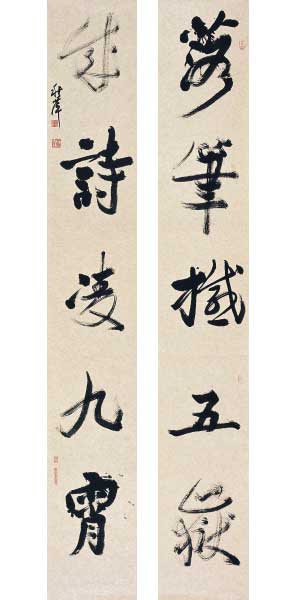 落筆撼五嶽
成詩凌九霄